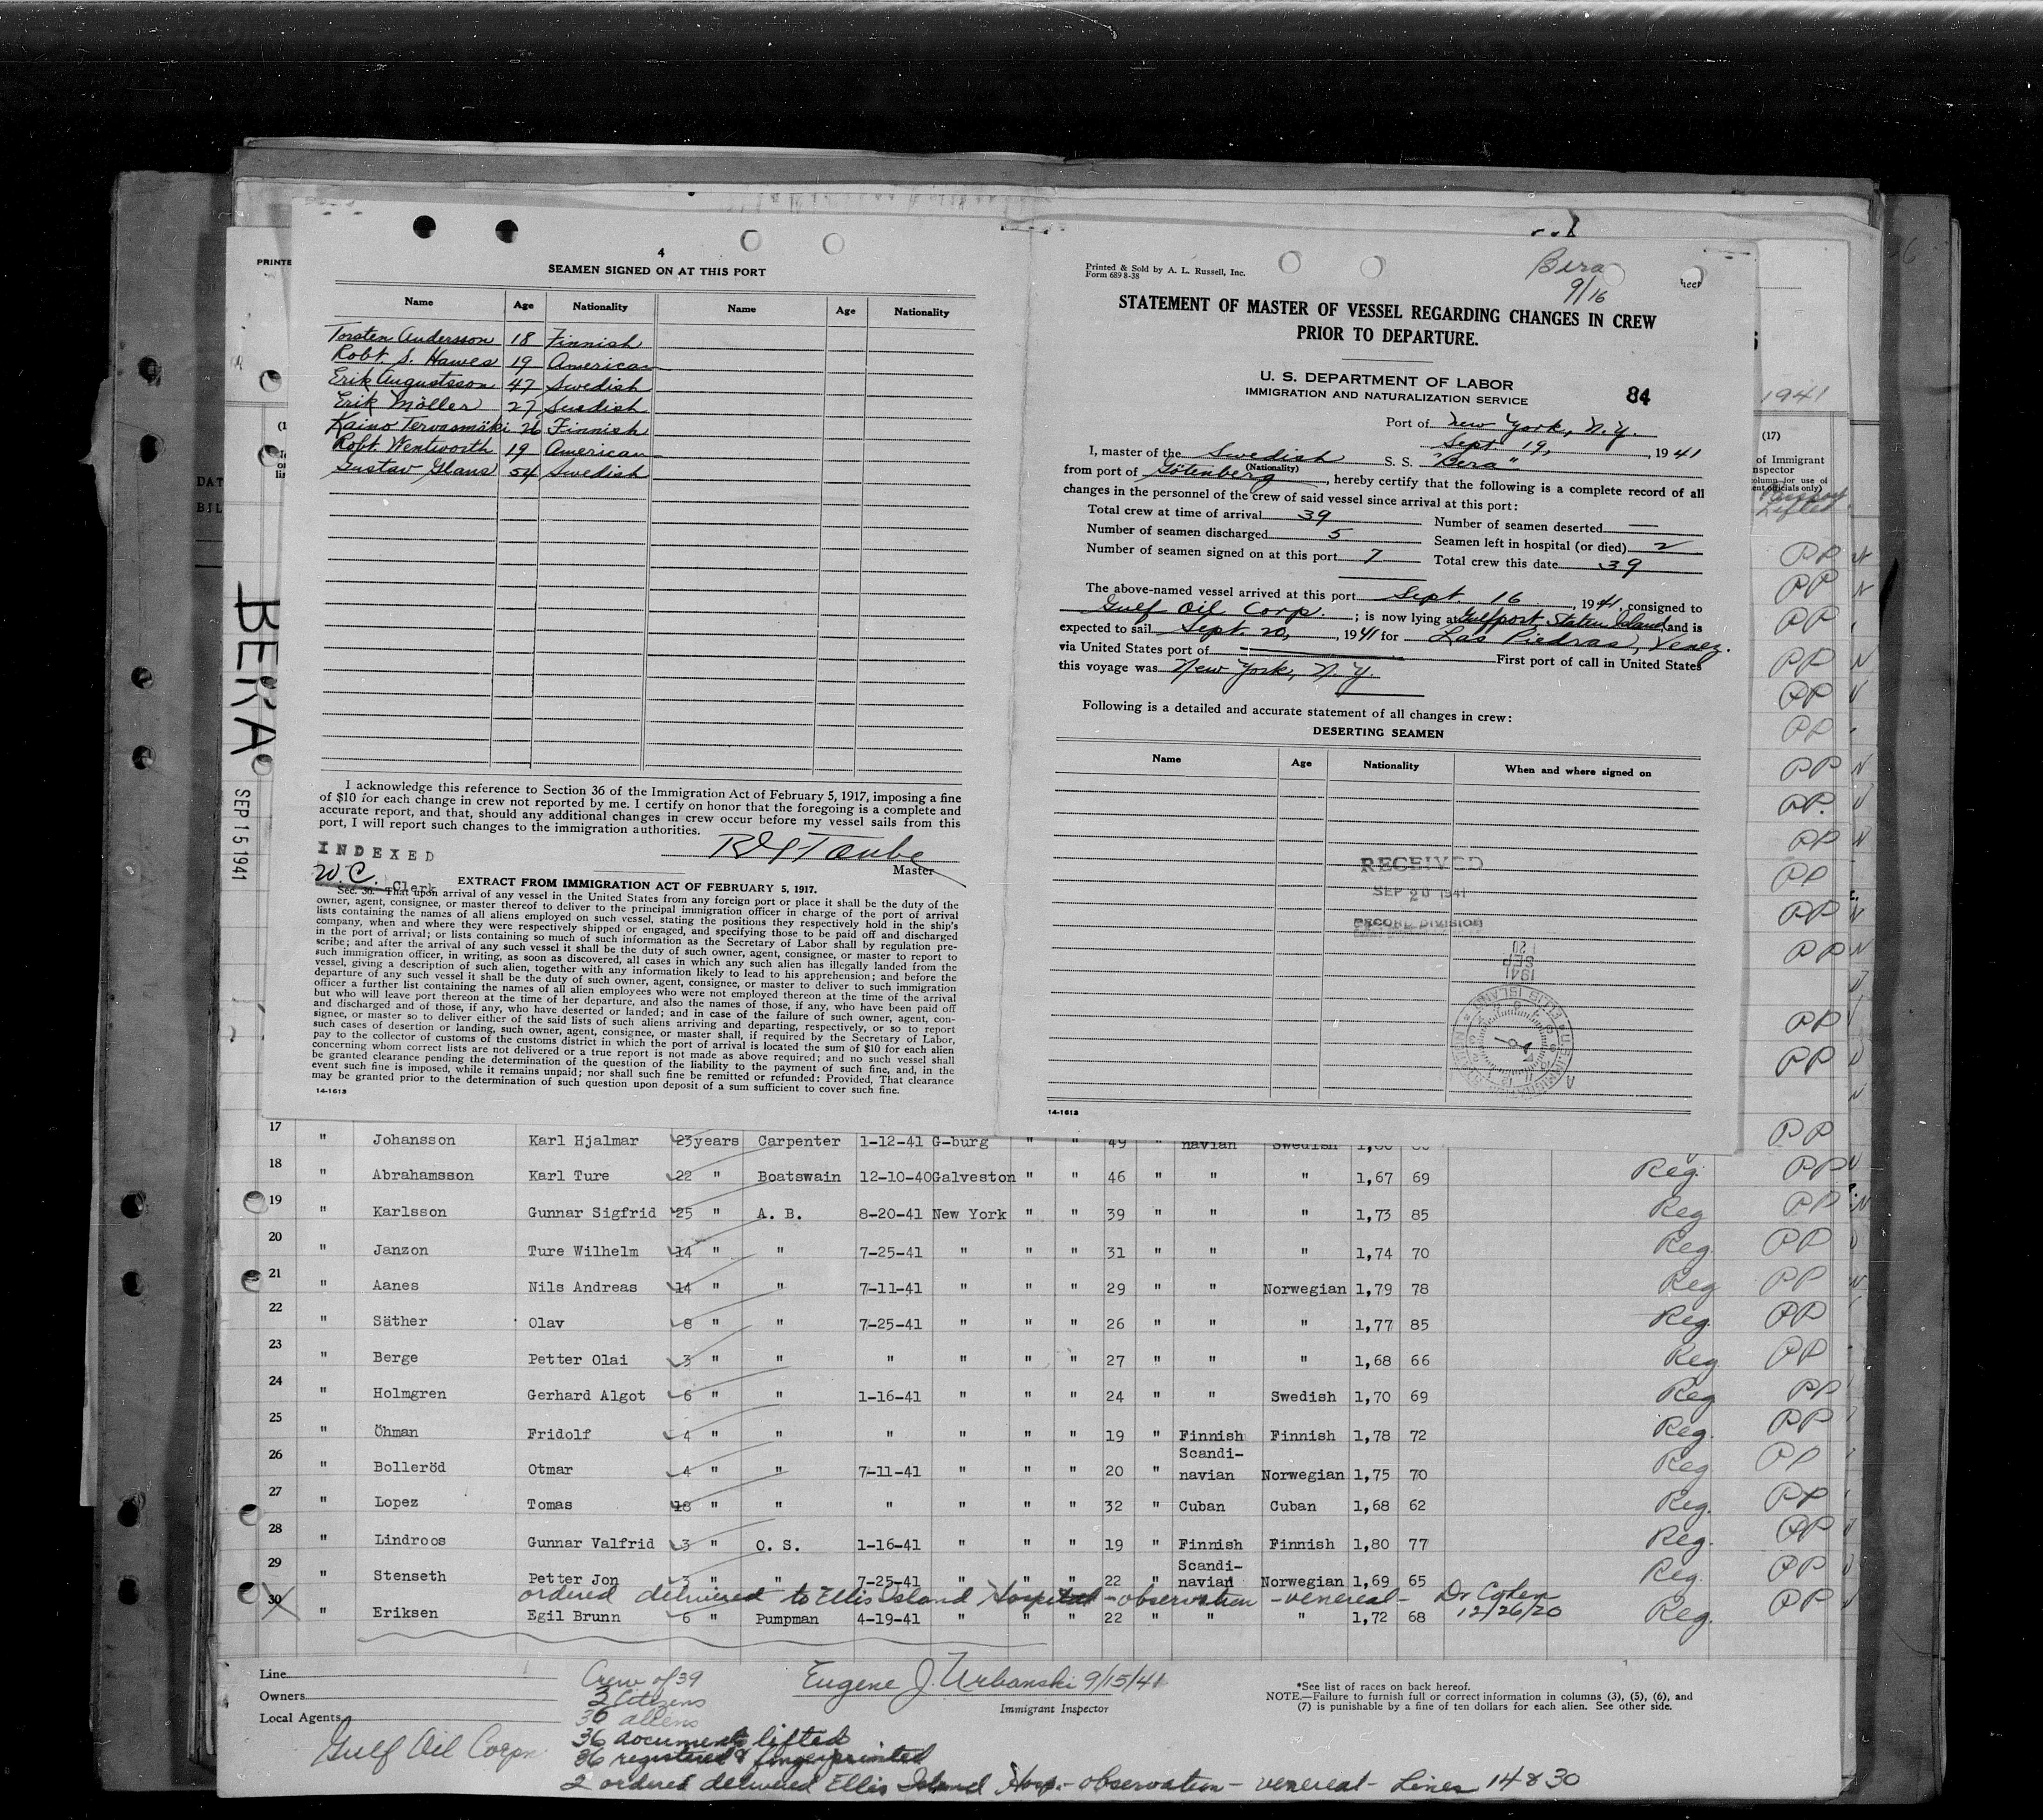 4
SEAMEN SIGNED ON AT THIS PORT
Name Age Nationality Name Age Nationality
Torsten Andersson 18 Finnish
Robt. S. Hawes 19 American
Erik Augustsson 47 Swedish
Erik Möller 27 Swedish
Kaino Tervasmäki 26 Finnish
Robt. Wentworth 19 American
Gustav Glans 54 Swedish
I acknowledge this reference to Section 36 of the Immigration Act of February 5, 1917, imposing a fine
of $10 for each change in crew not reported by me. I certify on honor that the foregoing is a complete and
accurate report, and that, should any additional changes in crew occur before my vessel sails from this
port, I will report such changes to the immigration authorities.
Taube
Master
INDEXED
W.C. Clerk
EXTRACT FROM IMMIGRATION ACT OF FEBRUARY 5, 1917.
Sec. 36. That upon arrival of any vessel in the United States from any foreign port or place it shall be the duty of the
owner, agent, consignee, or master thereof to deliver to the principal immigration officer in charge of the port of arrival
lists containing the names of all aliens employed on such vessel, stating the positions they respectively hold in the ship's
company, when and where they were respectively shipped or engaged, and specifying those to be paid off and discharged
in the port of arrival; or lists containing so much of such information as the Secretary of Labor shall by regulation pre-
scribe; and after the arrival of any such vessel it shall be the duty of such owner, agent, consignee, or master to report to
such immigration officer, in writing, as soon as discovered, all cases in which any such alien has illegally landed from the
vessel, giving a description of such alien, together with any information likely to lead to his apprehension; and before the
departure of any such vessel it shall be the duty of such owner, agent, consignee, or master to deliver to such immigration
officer a further list containing the names of all alien employees who were not employed thereon at the time of the arrival
but who will leave port thereon at the time of her departure, and also the names of those, if any, who have been paid off
and discharged and of those, if any, who have deserted or landed; and in case of the failure of such owner, agent, con-
signee, or master so to deliver either of the said lists of such aliens arriving and departing, respectively, or so to report
such cases of desertion or landing, such owner, agent, consignee, or master shall, if required by the Secretary of Labor,
pay to the collector of customs of the customs district in which the port of arrival is located the sum of $10 for each alien
concerning whom correct lists are not delivered or a true report is not made as above required; and no such vessel shall
be granted clearance pending the determination of the question of the liability to the payment of such fine, and, in the
event such fine is imposed, while it remains unpaid; nor shall such fine be remitted or refunded: Provided, That clearance
may be granted prior to the determination of such question upon deposit of a sum sufficient to cover such fine.
14-1613
Printed & Sold by A. L. Russell, Inc.
Form 689 8-38
Bera
9/16
STATEMENT OF MASTER OF VESSEL REGARDING CHANGES IN CREW
PRIOR TO DEPARTURE.
U. S. DEPARTMENT OF LABOR
IMMIGRATION AND NATURALIZATION SERVICE
84
Port of New York, N.Y.
Sept 19, , 1941
I, master of the Swedish S. S. "Bera"
(Nationality)
from port of Götenberg , hereby certify that the following is a complete record of all
changes in the personnel of the crew of said vessel since arrival at this port:
Total crew at time of arrival 39 Number of seamen deserted —
Number of seamen discharged 5 Seamen left in hospital (or died) 2
Number of seamen signed on at this port 7 Total crew this date 39
The above-named vessel arrived at this port Sept. 16 , 1941, consigned to
Gulf Oil Corp. ; is now lying at Gulfport Staten Island, and is
expected to sail Sept. 20, , 1941 for Las Piedras, Venez.
via United States port of First port of call in United States
this voyage was New York, N.Y.
Following is a detailed and accurate statement of all changes in crew:
DESERTING SEAMEN
Name Age Nationality When and where signed on
RECEIVED
SEP 20 1941
RECORD DIVISION
1941
SEP
20
ELLIS ISLAND
14-1613
PRINTE
DAT
BIL
BERA
SEP 15 1941
1941
(17)
of Immigrant
nspector
olumn for use of
ent officials only)
Passport
Lifted
17 " Johansson Karl Hjalmar 23 years Carpenter 1-12-41 G-burg " " 49 " navian Swedish 1,80 PP
18 " Abrahamsson Karl Ture 22 " Boatswain 12-10-40 Galveston " " 46 " " " 1,67 69 Reg. PP
19 " Karlsson Gunnar Sigfrid 25 " A. B. 8-20-41 New York " " 39 " " " 1,73 85 Reg PP
20 " Janzon Ture Wilhelm 14 " " 7-25-41 " " " 31 " " " 1,74 70 Reg. PP
21 " Aanes Nils Andreas 14 " " 7-11-41 " " " 29 " " Norwegian 1,79 78 Reg PP
22 " Säther Olav 8 " " 7-25-41 " " " 26 " " " 1,77 85 Reg. PP
23 " Berge Petter Olai 3 " " " " " " 27 " " " 1,68 66 Reg PP
24 " Holmgren Gerhard Algot 6 " " 1-16-41 " " " 24 " " Swedish 1,70 69 Reg PP
25 " Öhman Fridolf 4 " " " " " " 19 " Finnish Finnish 1,78 72 Reg. PP
26 " Bolleröd Otmar 4 " " 7-11-41 " " " 20 " Scandi-navian Norwegian 1,75 70 Reg PP
27 " Lopez Tomas 18 " " " " " " 32 " Cuban Cuban 1,68 62 Reg. PP
28 " Lindroos Gunnar Valfrid 3 " O. S. 1-16-41 " " " 19 " Finnish Finnish 1,80 77 Reg. PP
29 " Stenseth Petter Jon 3 " " 7-25-41 " " " 22 " Scandi-navian Norwegian 1,69 65 Reg. PP
ordered delivered to Ellis Island Hospital - observation - venereal - Dr Cohen
12/26/20
30 " Eriksen Egil Brunn 6 " Pumpman 4-19-41 " " " 22 " " " 1,72 68 Reg. PP
Line
Owners
Local Agents
Gulf Oil Corpn
Crew of 39
3 Citizens
36 aliens
36 documents lifted
36 registered & fingerprinted
2 ordered delivered Ellis Island Hosp. - observation - venereal - Lines 14 & 30
Eugene J. Urbanski 9/15/41
Immigrant Inspector
*See list of races on back hereof.
NOTE.—Failure to furnish full or correct information in columns (3), (5), (6), and
(7) is punishable by a fine of ten dollars for each alien. See other side.